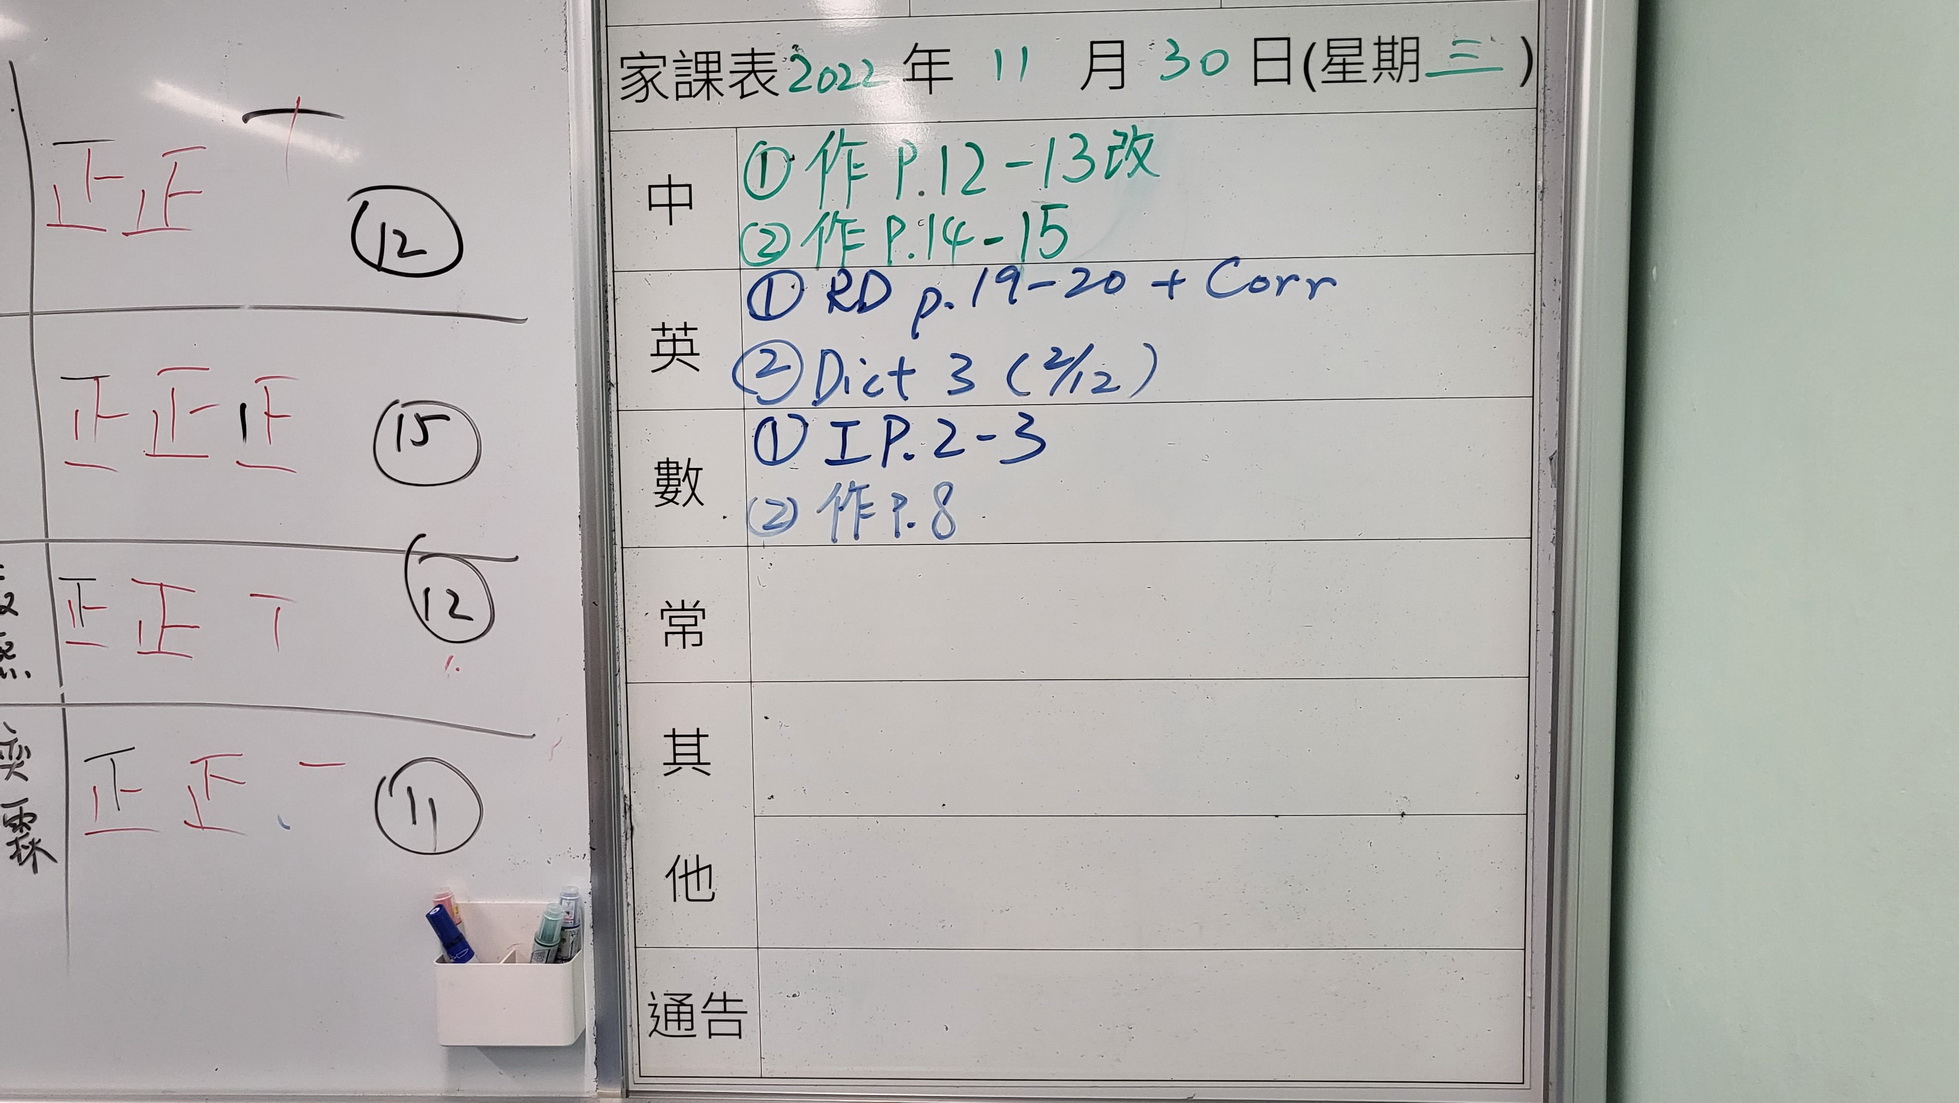 正正丅
12
正正正
15
正正丅
12
正正一
11
奕
霖
家課表2022年11月30日(星期三)
中
①作P.12-13改
②作P.14-15
英
①RD p.19-20 + Corr
②Dict 3 (2/12)
數
①I P.2-3
②作P.8
常
其
他
通告